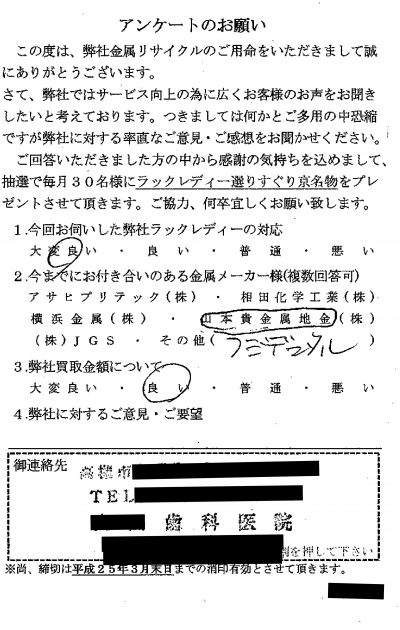 アンケートのお願い
この度は、弊社金属リサイクルのご用命をいただきまして誠
にありがとうございます。
さて、弊社ではサービス向上の為に広くお客様のお声をお聞き
したいと考えております。つきましては何かとご多用の中恐縮
ですが弊社に対する率直なご意見・ご感想をお聞かせください。
ご回答いただきました方の中から感謝の気持ちを込めまして、
抽選で毎月30名様にラックレディー選りすぐり京名物をプレ
ゼントさせて頂きます。ご協力、何卒宜しくお願い致します。
1.今回お伺いした弊社ラックレディーの対応
大変良い ・ 良い ・ 普通 ・ 悪い
2.今までにお付き合いのある金属メーカー様(複数回答可)
アサヒプリテック(株) ・ 相田化学工業(株)
横浜金属(株) ・ 山本貴金属地金(株)
(株)JGS ・ その他( フジデンタル )
3.弊社買取金額について
大変良い ・ 良い ・ 普通 ・ 悪い
4.弊社に対するご意見・ご要望
御連絡先
TEL
歯科医院
を押して下さい
※尚、締切は平成25年3月末日までの消印有効とさせて頂きます。